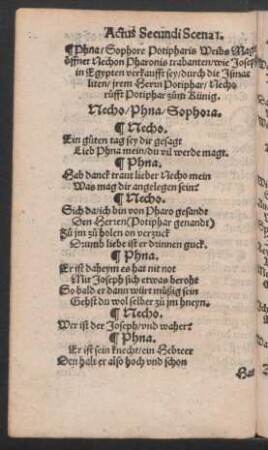 Actus Secundi Scena 1.
¶ Phna / Sophore Potipharis Weibs Magt
öffnet Nechon Pharonis trabanten / wie Joseph
in Ægypten verkaufft sey / durch die Ismae
liten / jrem Herrn Potiphar / Necho
rüfft Potiphar zům Künig.
Necho / Phna / Sophora.
¶ Necho.
Ein gůten tag sey dir gesagt
Lieb Phna mein / du vil werde magt.
¶ Phna.
Hab danck traut lieber Necho mein
Was mag dir angelegen sein?
¶ Necho.
Sich da / ich bin von Pharo gesandt
Den Herren (Potiphar genandt)
Zů jm zů holen on verzuck
Drumb liebe ist er drinnen guck.
¶ Phna.
Er ist daheym es hat nit not
Mit Joseph sich etwas beroht
So bald er dann würt müßig sein
Gehst du wol selber zů jm hneyn.
¶ Necho.
Wer ist der Joseph / vnd waher?
¶ Phna.
Er ist sein knecht / ein Hebreer
Den halt er also hoch vnd schon